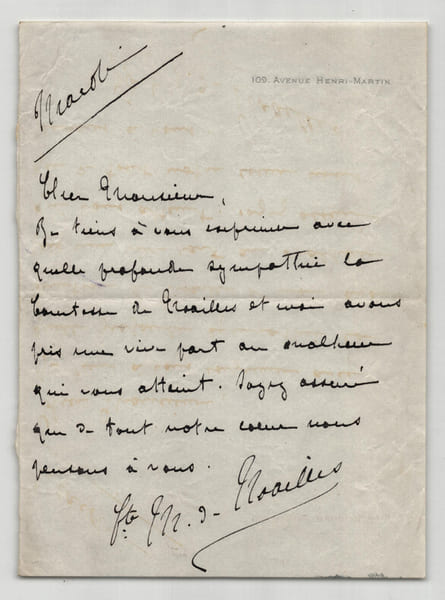 109, Avenue Henri-Martin
Cher Monsieur,
Je tiens à vous exprimer avec
quelle profonde sympathie la
Comtesse de Noailles et moi avons
pris une vive part au malheur
qui vous atteint. Soyez assuré
que de tout notre coeur nous
pensons à vous.
M. de Noailles